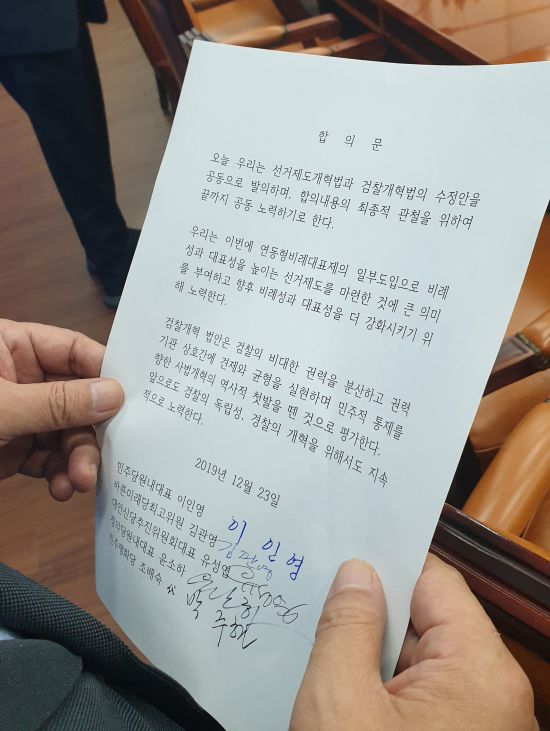 합 의 문
오늘 우리는 선거제도개혁법과 검찰개혁법의 수정안을
공동으로 발의하며, 합의내용의 최종적 관철을 위하여
끝까지 공동 노력하기로 한다.
우리는 이번에 연동형비례대표제의 일부도입으로 비례
성과 대표성을 높이는 선거제도를 마련한 것에 큰 의미
를 부여하고 향후 비례성과 대표성을 더 강화시키기 위
해 노력한다.
검찰개혁 법안은 검찰의 비대한 권력을 분산하고 권력
기관 상호간에 견제와 균형을 실현하며 민주적 통제를
향한 사법개혁의 역사적 첫발을 뗀 것으로 평가한다.
앞으로도 검찰의 독립성, 경찰의 개혁을 위해서도 지속
적으로 노력한다.
2019년 12월 23일
민주당원내대표 이인영 이 인 영
바른미래당최고위원 김관영 김관영
대안신당추진위원회대표 유성엽
정의당원내대표 윤소하
민주평화당 조배숙 박 주 현